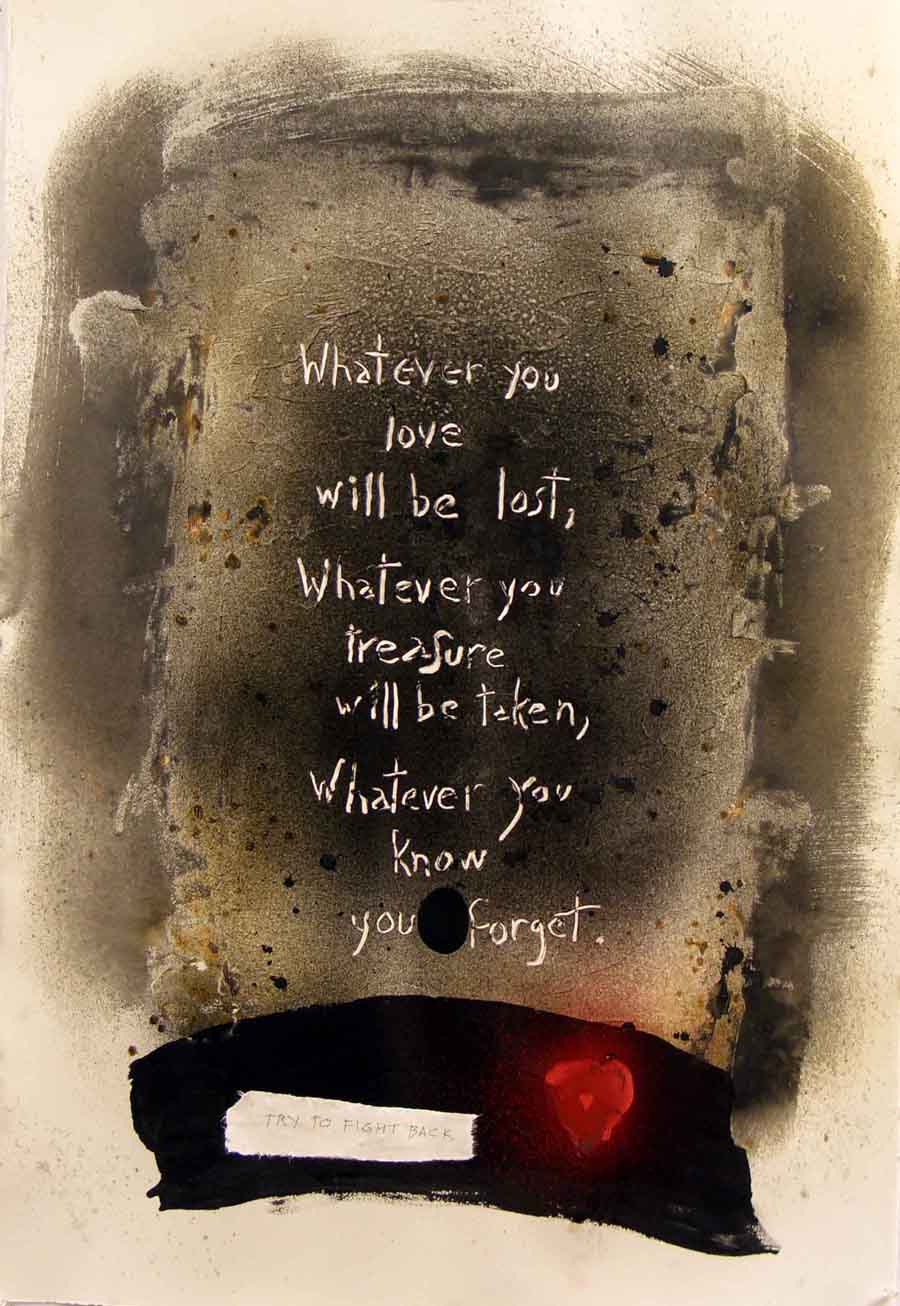 Whatever you
love
will be lost,
Whatever you
treasure
will be taken,
Whatever you
know
you forget.
TRY TO FIGHT BACK